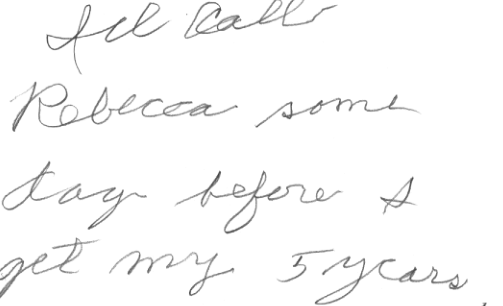 I'll call
Rebecca some
day before I
get my 5 years.